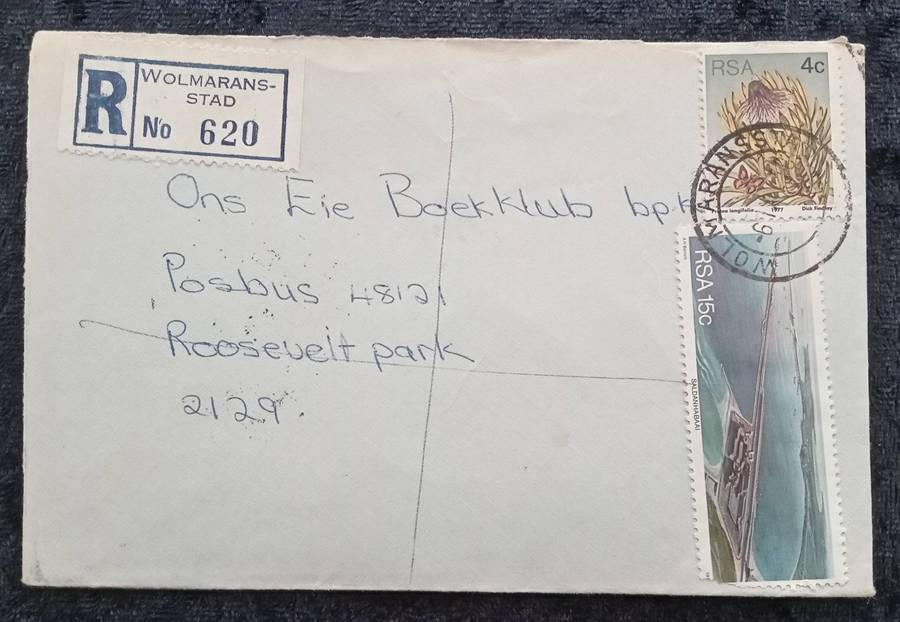 R
WOLMARANS-
STAD
No 620
RSA 4c
1977 Dick Findlay
WOLMARANSS
Ons Eie Boekklub bpk
Posbus 48121
Roosevelt park
2129.
RSA 15c
SALDANHABAAI